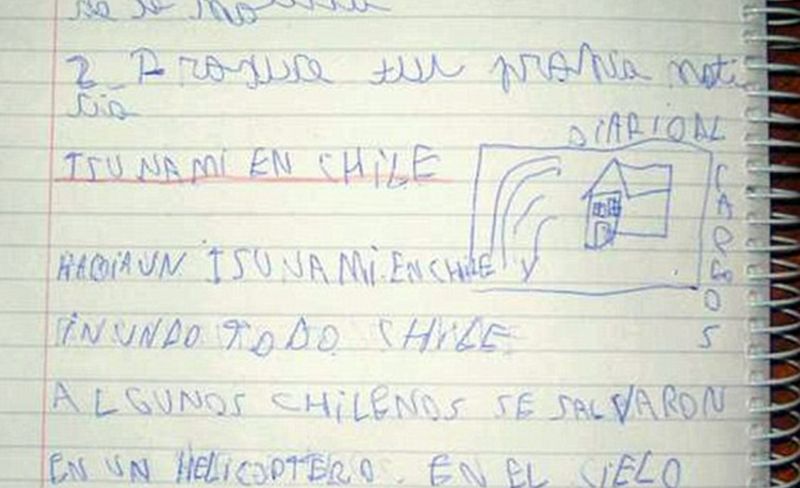 2 Produce tu propia noti
cia
DIARIO AL
TSUNAMI EN CHILE
HABIA UN TSUNAMI. EN CHILE
INUNDO TODO CHILE
ALGUNOS CHILENOS SE SALVARON
EN UN HELICOPTERO. EN EL CIELO